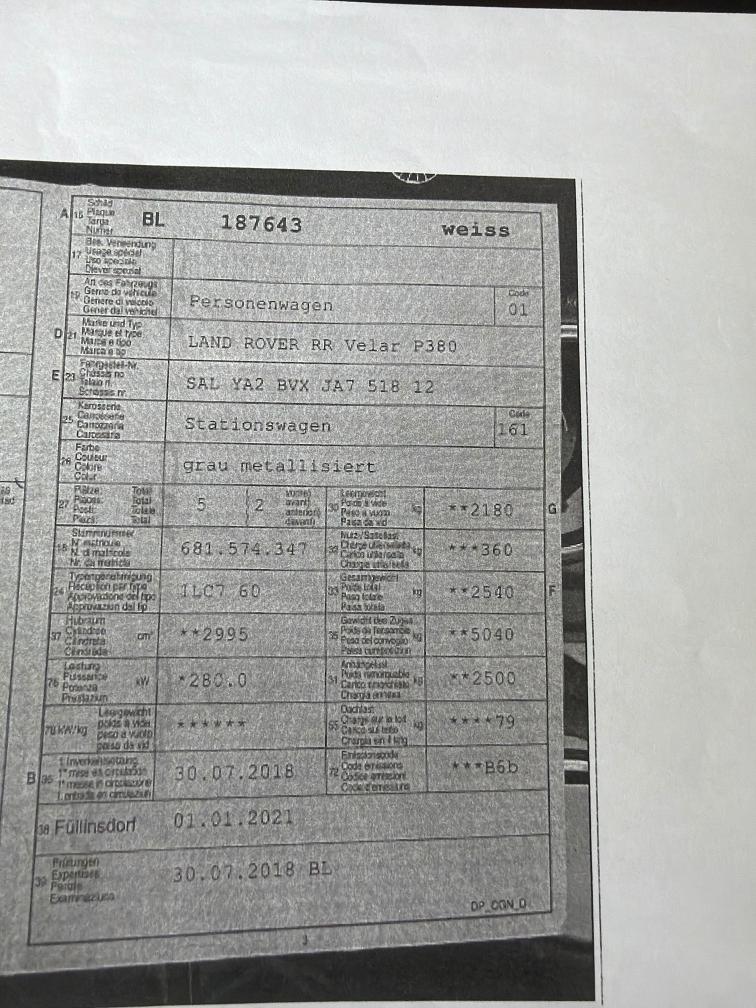 A 15 Schild
Plaque
Targa
Numer
BL 187643 weiss
17 Bes. Verwendung
Usage spécial
Uso speciale
Diever spezial
19 Art des Fahrzeugs
Genre de véhicule
Genere di veicolo
Gener dal vehichel
Personenwagen
Code
01
D 21 Marke und Typ
Marque et type
Marca e tipo
Marca e tip
LAND ROVER RR Velar P380
E 23 Fahrgestell-Nr.
Châssis no
Telaio n.
Schassis nr.
SAL YA2 BVX JA7 518 12
25 Karosserie
Carrosserie
Carrozzeria
Carossaria
Stationswagen
Code
161
26 Farbe
Couleur
Colore
Colur
grau metallisiert
27 Plätze: Total
Places: Total
Posti: Totale
Plazs: Total
5 2
vorne)
avant)
anteriori)
davant)
30 Leergewicht
Poids à vide
Peso a vuoto
Paisa da vid
kg
**2180 G
18 Stammnummer
N° matricule
N. di matricola
Nr. da matricla
681.574.347
32 Nutz-/Sattellast
kg
***360
24 Typengenehmigung
Réception par type
Approvazione del tipo
Approvaziun dal tip
1LC7 60
33 Gesamtgewicht
Poids total
Peso totale
Paisa totala
kg
**2540 F
37 Hubraum
Cylindrée
Cilindrata
cm³
**2995
35 Gewicht des Zuges
Poids de l'ensemble
Peso del convoglio
kg
**5040
76 Leistung
Puissance
Potenza
Prestaziun
kW
*280.0
31 Anhängelast
Poids remorquable
kg
**2500
78 kW/kg
Leergewicht
poids à vide
peso a vuoto
paisa da vid
******
55 Dachlast
Charge sur le toit
Carico sul tetto
kg
****79
B 36 1. Inverkehrsetzung
1re mise en circulation
1a messa in circolazione
30.07.2018
72 Emissionscode
Code émissions
Codice emissioni
***B6b
38 Füllinsdorf 01.01.2021
39 Prüfungen
Expertises
Perizie
30.07.2018 BL
DP_CGN_D
3